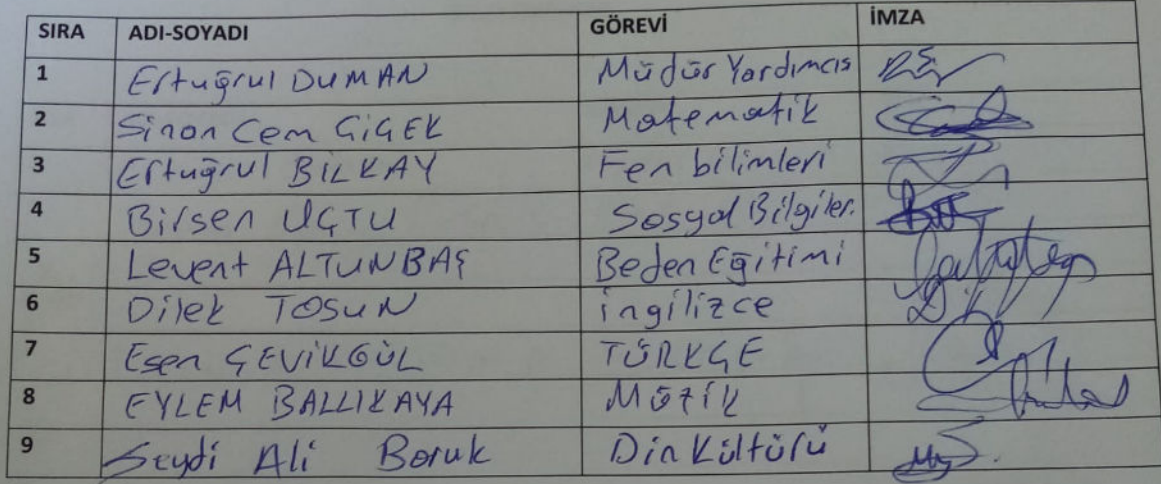 SIRA ADI-SOYADI GÖREVİ İMZA
1 Ertuğrul DUMAN Müdür Yardımcıs
2 Sinan Cem ÇİÇEK Matematik
3 Ertuğrul BİLKAY Fen bilimleri
4 Birsen UÇTU Sosyal Bilgiler.
5 Levent ALTUNBAŞ Beden Eğitimi
6 Dilek TOSUN ingilizce
7 Esen ÇEVİKGÜL TÜRKÇE
8 EYLEM BALLIKAYA Müzik
9 Seydi Ali Boruk Din Kültürü